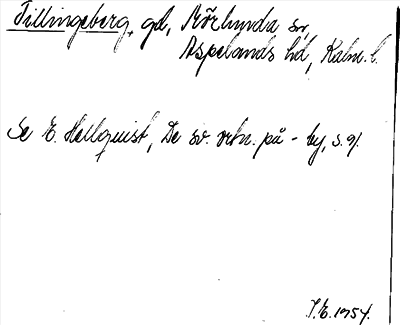 Tillingeberg, gd, Mörlunda sn,
Aspelands hd, Kalm. l.
Se E. Hellquist, De sv. ortn. på -by, s. 91.
J.E. 1954.